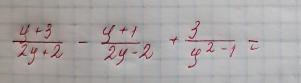 \frac{y+3}{2y+2} - \frac{y+1}{2y-2} + \frac{3}{y^2-1} =